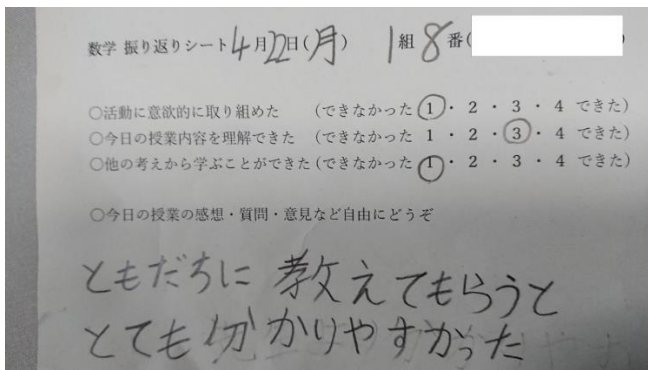 数学 振り返りシート4月22日(月) 1組8番(          )
○活動に意欲的に取り組めた (できなかった 1・2・3・4 できた)
○今日の授業内容を理解できた (できなかった 1・2・3・4 できた)
○他の考えから学ぶことができた(できなかった 1・2・3・4 できた)
○今日の授業の感想・質問・意見など自由にどうぞ
ともだちに教えてもらうと
とても分かりやすかった